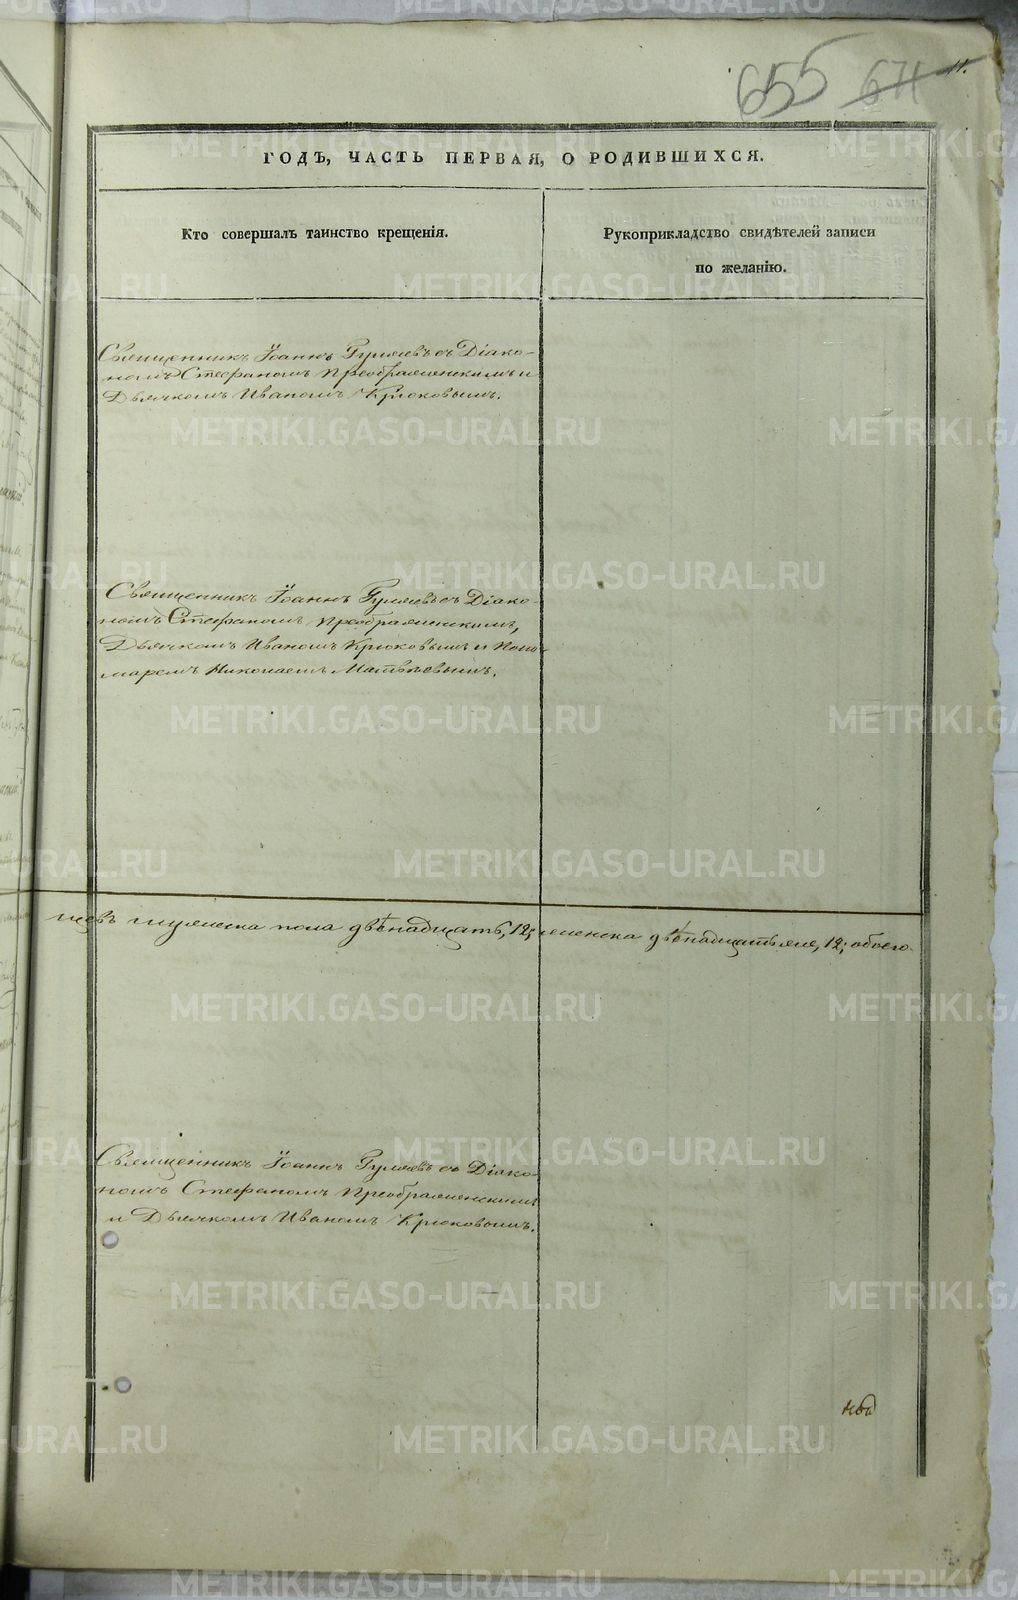 655 671 11.
ГОДЪ, ЧАСТЬ ПЕРВАЯ, О РОДИВШИХСЯ.
Кто совершалъ таинство крещенія.
Рукоприкладство свидѣтелей записи
по желанію.
Священникъ Іоаннъ Гуляевъ съ Діако-
номъ Стефаномъ Преображенскимъ и
Дьячкомъ Иваномъ Крюковымъ.
Священникъ Іоаннъ Гуляевъ съ Діако-
номъ Стефаномъ Преображенскимъ,
Дьячкомъ Иваномъ Крюковымъ и Поно-
маремъ Николаемъ Матвѣевымъ.
мужеска пола двѣнадцать, 12; женска двѣнадцать же, 12; обоего
Священникъ Іоаннъ Гуляевъ съ Діако-
номъ Стефаномъ Преображенскимъ
и Дьячкомъ Иваномъ Крюковымъ.
METRIKI.GASO-URAL.RU